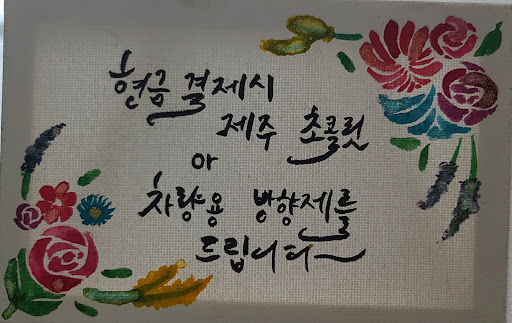 현금 결제시
제주 초콜릿
or
차량용 방향제를
드립니다~